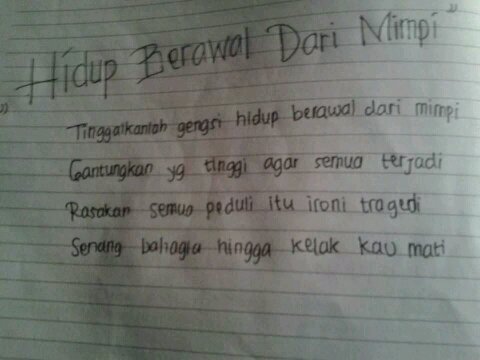 "Hidup Berawal Dari Mimpi"
Tinggalkanlah gengsi hidup berawal dari mimpi
Gantungkan yg tinggi agar semua terjadi
Rasakan semua peduli itu ironi tragedi
Senang bahagia hingga kelak kau mati